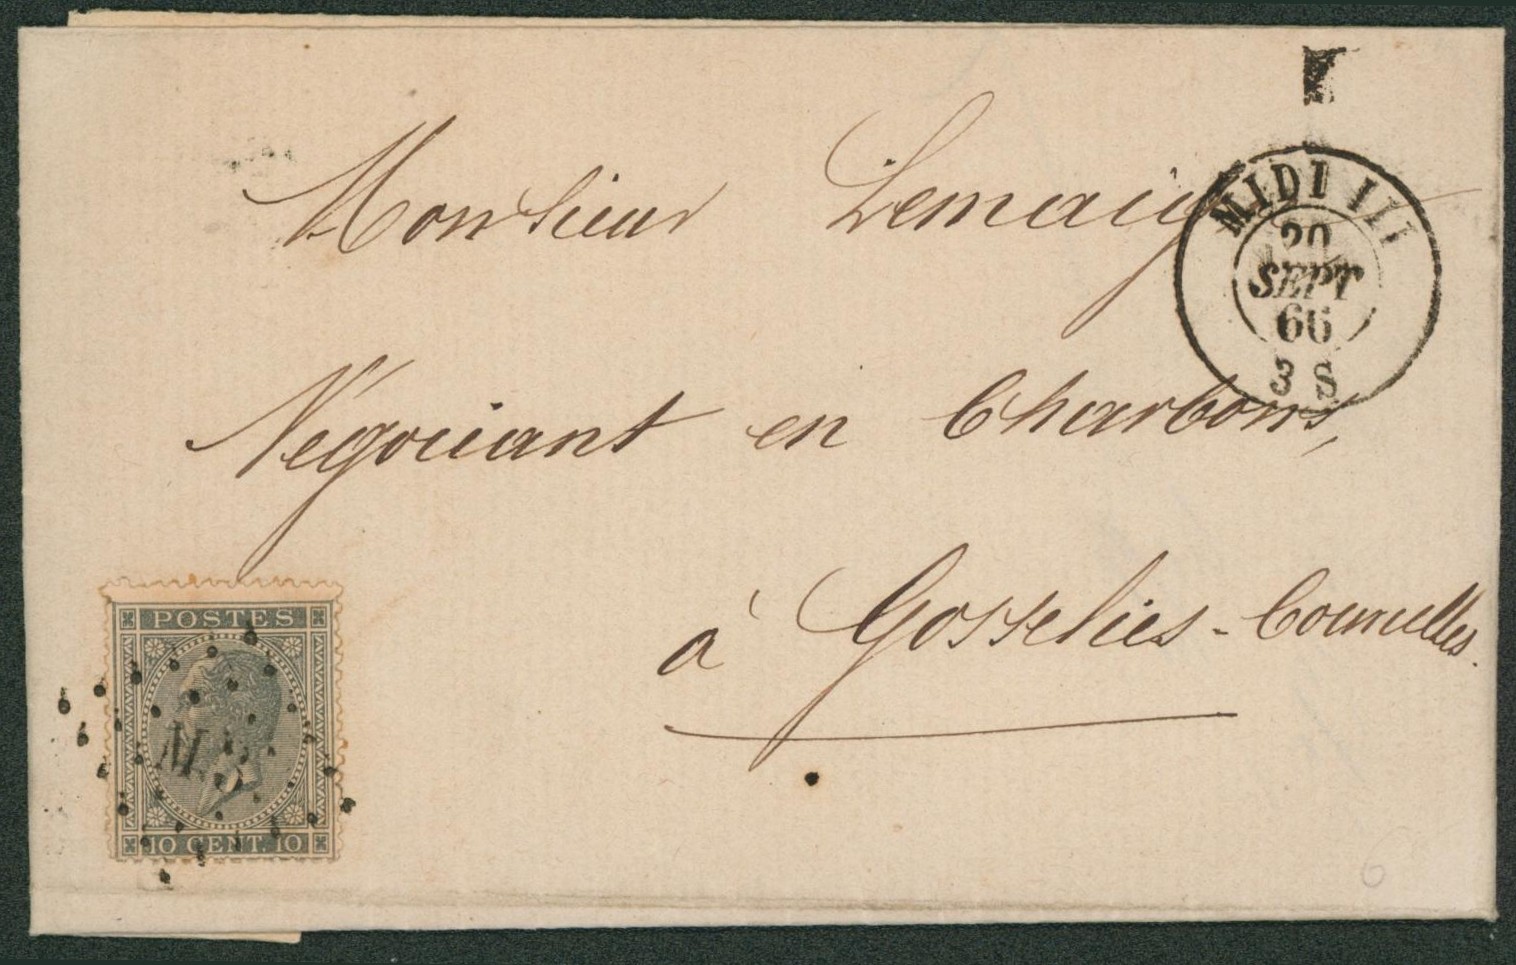 Monsieur Lemaig
MIDI III
20
SEPT
66
3 S
Négociant en Charbons,
à Gosselies-Courcelles.
POSTES
M.3
10 CENT. 10
6